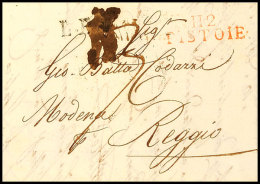 112
PISTOIE
Sig
Gio Batta Codazzi
Modena
Reggio